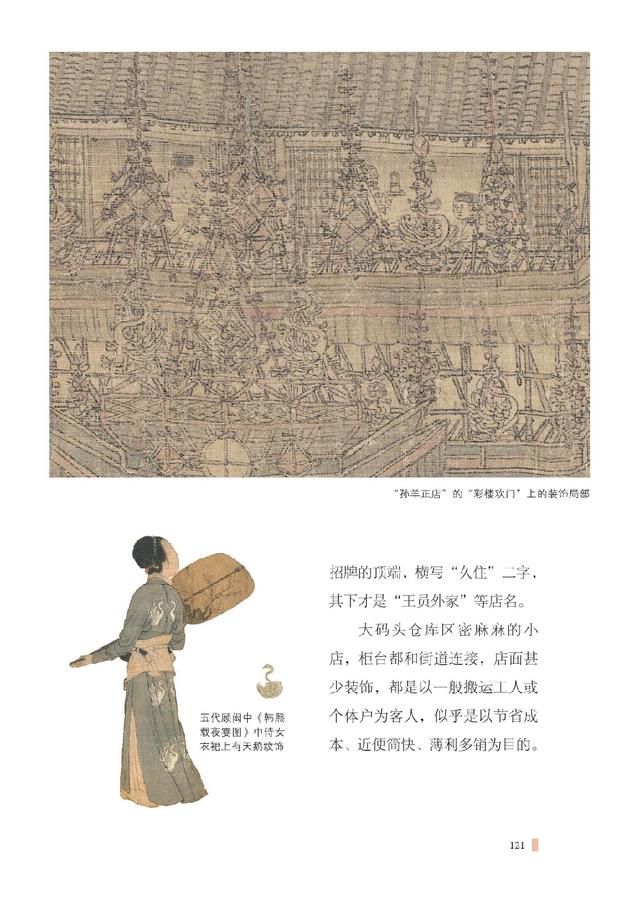 “孙羊正店”的“彩楼欢门”上的装饰局部
招牌的顶端，横写“久住”二字，
其下才是“王员外家”等店名。
大码头仓库区密麻麻的小
店，柜台都和街道连接，店面甚
少装饰，都是以一般搬运工人或
个体户为客人，似乎是以节省成
本、近便简快、薄利多销为目的。
五代顾闳中《韩熙
载夜宴图》中侍女
衣裙上有天鹅纹饰
121